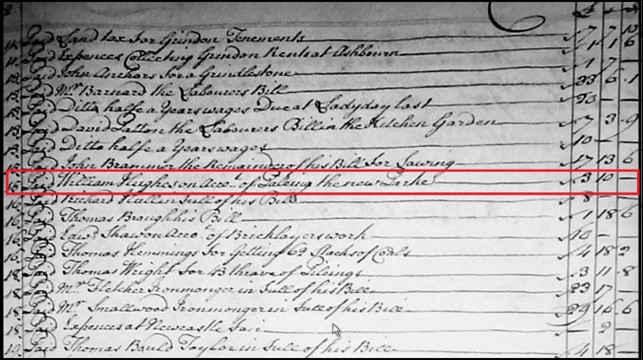 £
Paid Land tax for Grindon Tenements 7 7 10
Paid Expences Collecting Grindon Rents at Ashburn 1 1 6
Paid John for a Grindlestone 1 7 -
Paid Mr. Barnard the Labourers Bill 6
Paid Ditto half a Years wages Due at Ladyday last
Paid David the Labourers Bill in the Kitchen Garden 7 3 9
Paid Ditto half a Years wages 10 -
Paid John Brammor the Remainder of his Bill for Sawing 17 13 6
Paid William Hughes on Acct. of the new Parke 3 10 -
Paid Richard Hallen in full of his Bill 8 -
Paid Thomas his Bill 1 18 6
Paid Edwd. Shaw on Acct. of Bricklayers work 10 -
Paid Thomas Hemmings for Getting 62 Stacks of Coals 4 18 2
Paid Thomas Wright for of 3 11 8
Paid Mr. Fletcher Ironmonger in full of his Bill 23 17 -
Paid Mr. Smallwood Ironmonger in full of his Bill 29 16 6
Paid Expences at Newcastle Fair - 2 -
Paid Thomas Bould Taylor in full of his Bill 4 18